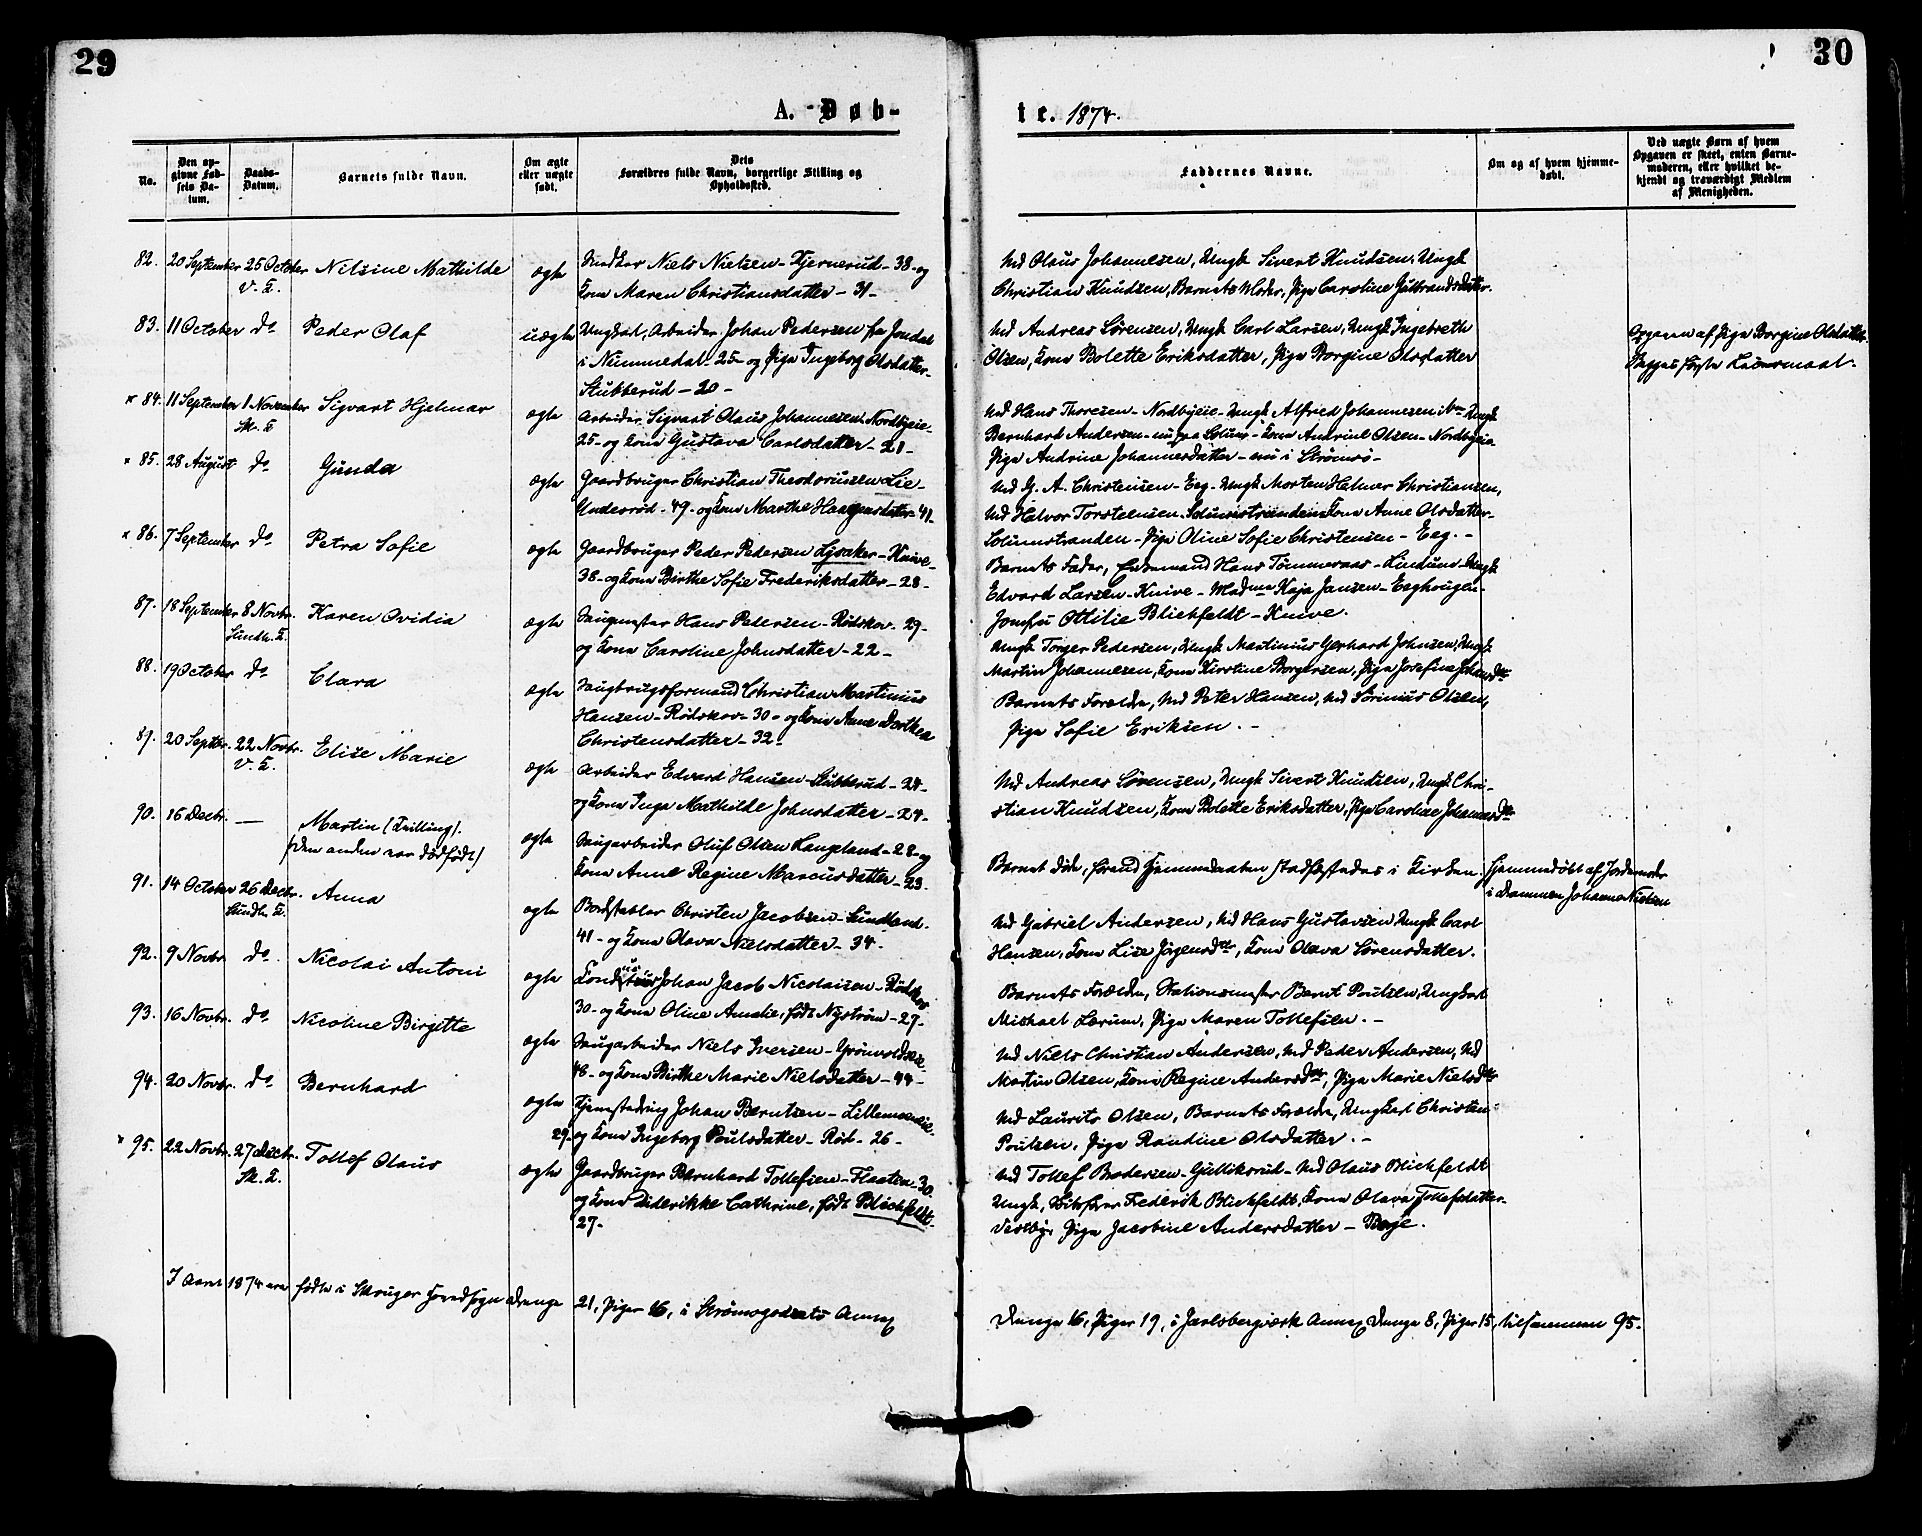 29
30
A. Døb-
te. 1874.
No.
Den op-
givne Fød-
sels Da-
tum.
Daabs-
Datum.
Barnets fulde Navn.
Om ægte
eller uægte
født.
Dets
Forældres fulde Navn, borgerlige Stilling og
Opholdssted.
Faddernes Navne.
Om og af hvem hjemme-
døbt.
Ved uægte Børn af hvem
Opgaven er skeet, enten Barne-
moderen, eller hvilket be-
kjendt og troværdigt Medlem
af Menigheden.
82. 20 September 25 October Nilsine Mathilde ægte
V. K.
Niels Nielsen - Kjernerud - 38 - og
Kone Maren Christiansdatter - 31 -
Md Olaus Johannesen, Ungk Sivert Knudsen, Ungk
Christian Knudsen, Barnets Moder, Pige Caroline Gulbrandsdatter.
83. 11 October do Peder Olaf uægte
Ungkarl, Arbeider Johan Pedersen fra Jondal
i Nummedal - 25 - og Pige Ingeborg Olsdatter -
Stubberud - 20 -
Md Andreas Sørensen, Ungk Carl Larsen, Ungk Ingebreth
Olsen, Kone Bolette Eriksdatter, Pige Borgine Olsdatter
Opgaven af Pige Borgine Olsdatter.
Begges første Leiermaal.
* 84. 11 September 1 November Sigvart Hjelmar ægte
Sk. K.
Arbeider Sigvart Olaus Johannesen Nordbyeie -
25 - og Kone Gustava Carlsdatter - 21 -
Md Hans Thoresen - Nordbyeie - Ungk Alfred Johannesen Ungk
Bernhard Andersen - nu paa Solum - Kone Andrine Olsen - Nordbyeie
Pige Andrine Johannesdatter - nu i Strømsø -
* 85. 28 August do Gunda ægte
Gaardbruger Christian Theodoriusen Lie -
Underrød - 49 - og Kone Marthe Haagensdatter - 41 -
Md G. A. Christensen - Eeg - Ungk Morten Helmer Christiansen,
Md Helvor Torstensen Solumstranden Kone Anne Olsdatter -
Solumstranden - Pige Oline Sofie Christensen - Eeg. -
* 86. 7 September do Petra Sofie ægte
Gaardbruger Peder Pedersen Lysaker - Knive -
38 - og Kone Birthe Sofie Frederiksdatter - 28 -
Barnets Fader, Hans Tømmeraas - Lindum - Ungk
Edvard Larsen - Knive - Madme Kaja Jansen - Eeghougen -
Jomfru Ottilie Blichfeldt - Knive.
87. 18 September 8 Novbr. Karen Ovidia ægte
Sundh. K.
Saugmester Hans Pedersen - Rødskov - 29 -
og Kone Caroline Johnsdatter - 22 -
Ungk Torger Pedersen, Ungk Martinius Gerhard Johnsen, Ungk
Martin Johannesen, Kone Kirstine Borgersen, Pige Josefine Johansdtr
88. 19 October do Clara ægte
Saugbrugsformand Christian Martinius
Hansen - Rødskov - 30 - og Kone Anne Dorthea
Christensdatter - 32 -
Barnets Forældre, Md Peter Hansen, Md Sørinius Olsen,
Pige Sofie Eriksen. -
89. 20 Septbr. 22 Novbr. Elise Marie ægte
V. K.
Arbeider Edvard Hansen - Stubberud - 28 -
og Kone Inga Mathilde Johnsdatter - 24 -
Md Andreas Sørensen, Ungk Sivert Knudsen, Ungk Chri-
stian Knudsen, Kone Bolette Eriksdatter, Pige Caroline Johannesdtr
90. 16 Decbr. — Martin (Tvilling). ægte
(den anden var dødfødt)
Saugarbeider Oluf Olsen Langeland - 28 - og
Kone Anne Regine Marcusdatter - 23 -
Barnet døde, førend Hjemmedaaben stadfæstedes i Kirken.
Hjemmedøbt af Jordemoder
i Drammen Johanne Nielsen
91. 14 October 26 Decbr. Anna ægte
Sundh. K.
Bordstabler Christen Jacobsen - Sundland -
41 - og Kone Olava Nielsdatter - 34 -
Md Gabriel Andersen, Md Hans Gustavsen, Ungk Carl
Hansen, Kone Lise Jørgensdtr, Kone Olava Sørensdatter.
92. 9 Novbr. do Nicolai Antoni ægte
Johan Jacob Nicolaisen - Rødskov
30 - og Kone Oline Amalie, født Nystrøm - 27 -
Barnets Forældre, Stationsmester Bernt Poulsen, Ungkarl
Michael Lærum, Pige Maren Tollefsen. -
93. 16 Novbr. do Nicoline Birgitte ægte
Saugarbeider Niels Iversen - Grønvoldeie
48 - og Kone Birthe Marie Nielsdatter - 44 -
Md Niels Christian Andersen, Md Peder Andersen, Md
Martin Olsen, Kone Regine Andersdtr, Pige Marie Nielsdtr
94. 20 Novbr. do Bernhard ægte
Johan Berntsen -
29 - og Kone Ingeborg Poulsdatter - Rød - 26 -
Md Laurits Olsen, Barnets Forældre, Ungkarl Christian
Poulsen, Pige Randine Olsdatter. -
* 95. 22 Novbr. 27 Decbr. Tollef Olaus ægte
Sk. K.
Gaardbruger Bernhard Tollefsen - Flaaten - 30 -
og Kone Diderikke Cathrine, født Blichfeldt -
27 -
Md Tollef Brodersen - Gulliksrud - Md Olaus Blichfeldt
Ungk, Frederik Blichfeldt, Kone Olava Tollefsdatter -
Vestby, Pige Jacobine Andersdatter - Berje.
I Aaret 1874 ere fødte i Skouger Hovedsogn Drenge 21, Piger 16, i Strømsgodsets Annex
Drenge 16, Piger 19, i Jarlsbergværk Annex Drenge 8, Piger 15, tilsammen 95.